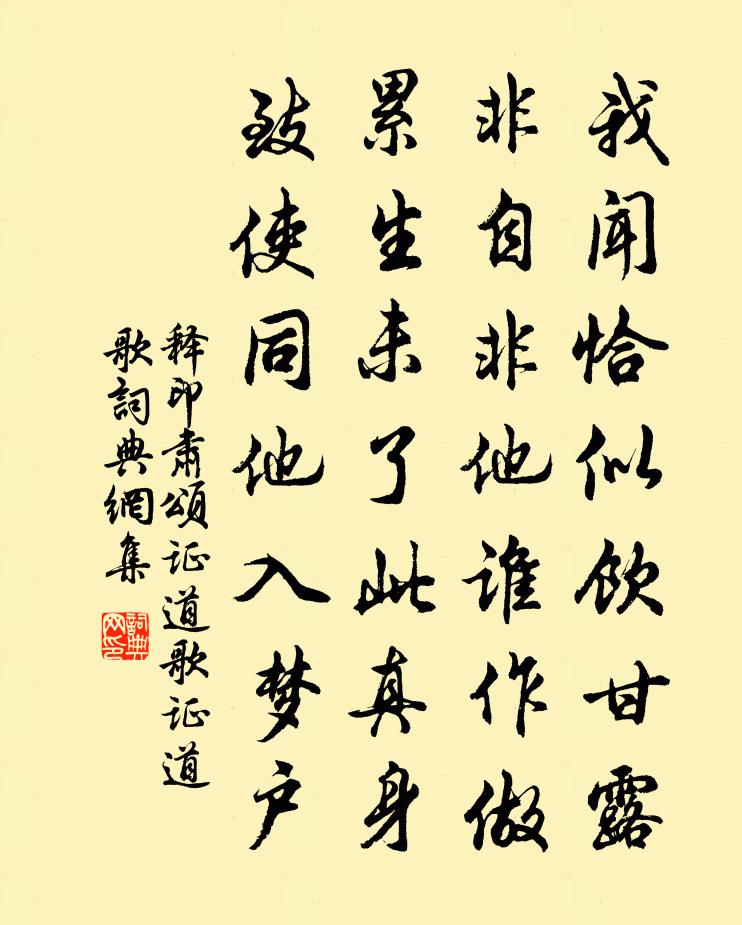 我闻恰似饮甘露
非自非他谁作做
累生未了此真身
致使同他入梦户
释印肃颂证道歌证道
歌詞典網集
詞典
网印